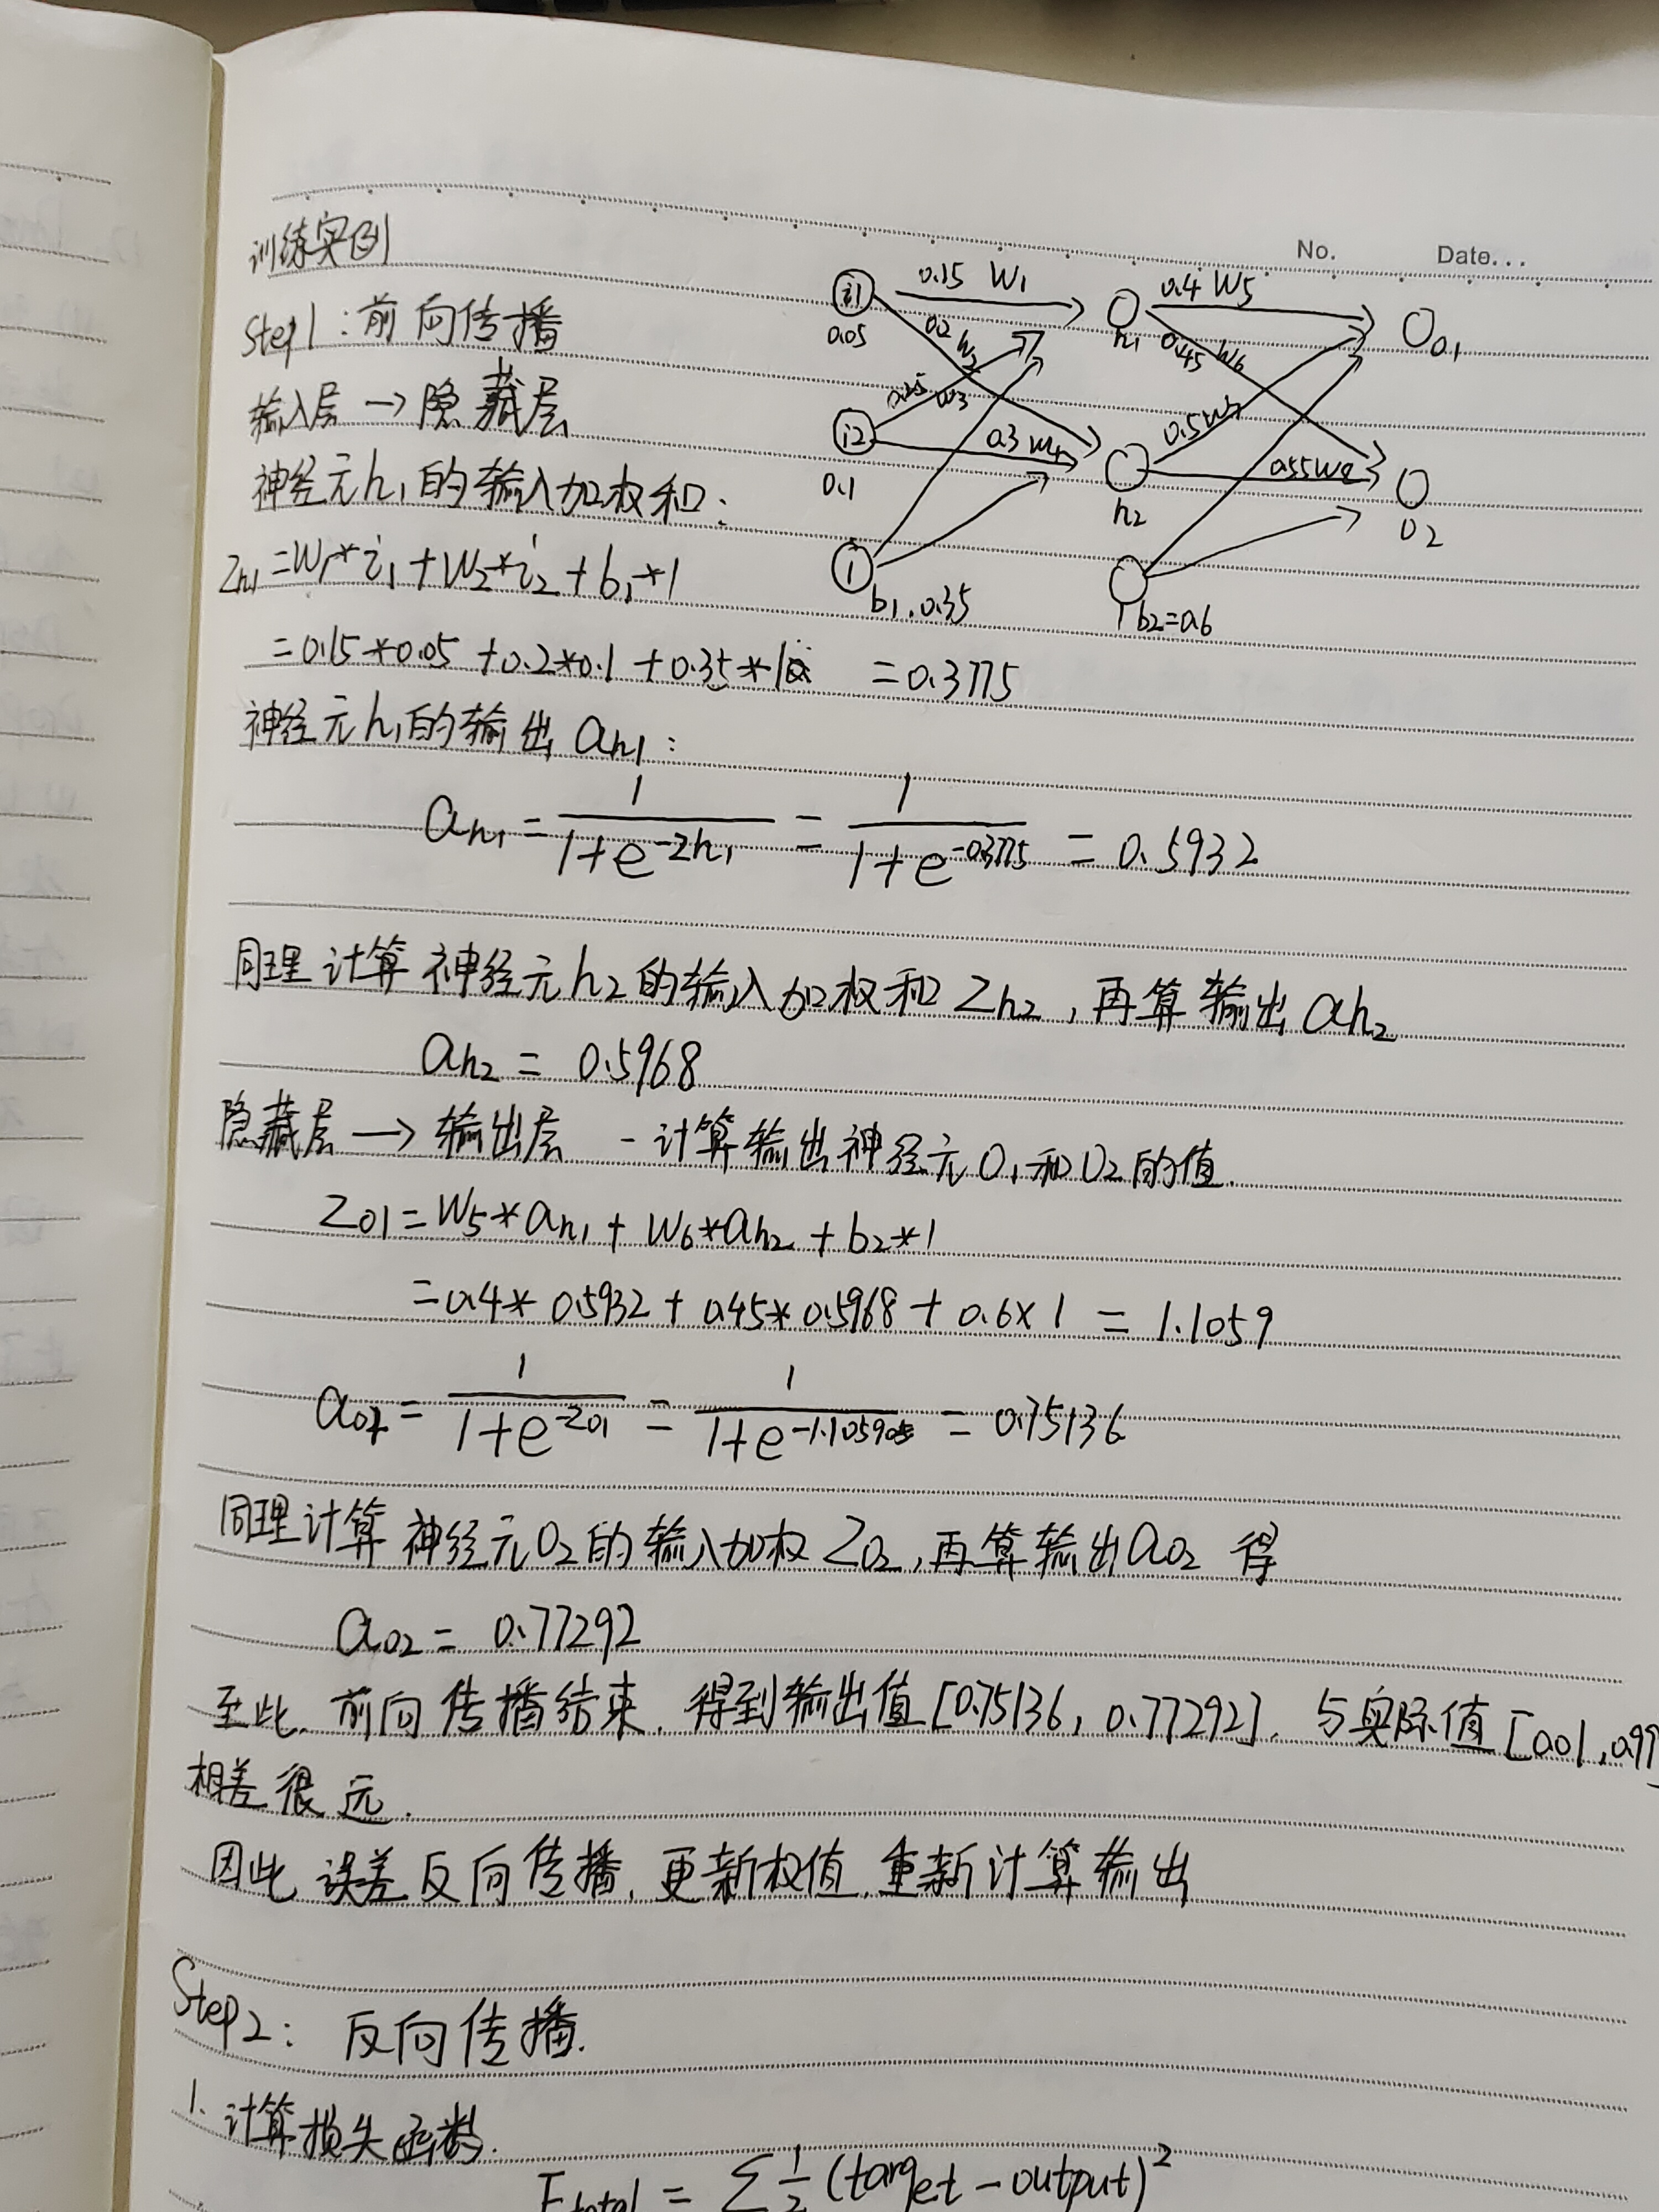 No. Date...
训练实例
Step1:前向传播
输入层→隐藏层
神经元h₁的输入加权和:
Zh1=W1*i1+W2*i2+b1*1
=0.15*0.05+0.2*0.1+0.35*1 =0.3775
i1 0.15 W1 h1 0.4 W5 O1
0.05 0.2 W2 0.45 W6
i2 0.25 W3 0.5 W7
0.1 0.3 W4 h2 0.55 W8 O2
1 b1.0.35 1 b2=0.6
神经元h1的输出 ah1:
ah1=1/(1+e^-Zh1)=1/(1+e^-0.3775)=0.5932
同理计算神经元h2的输入加权和Zh2,再算输出ah2
ah2=0.5968
隐藏层→输出层 -计算输出神经元O1和O2的值.
ZO1=W5*ah1+W6*ah2+b2*1
=0.4*0.5932+0.45*0.5968+0.6×1=1.1059
aO1=1/(1+e^-ZO1)=1/(1+e^-1.105905)=0.75136
同理计算神经元O2的输入加权ZO2,再算输出aO2 得
aO2=0.77292
至此.前向传播结束.得到输出值[0.75136,0.77292].与实际值[0.01,0.99]
相差很远.
因此 误差反向传播,更新权值,重新计算输出
Step2:反向传播.
1.计算损失函数.
Etotal=∑1/2(target-output)²